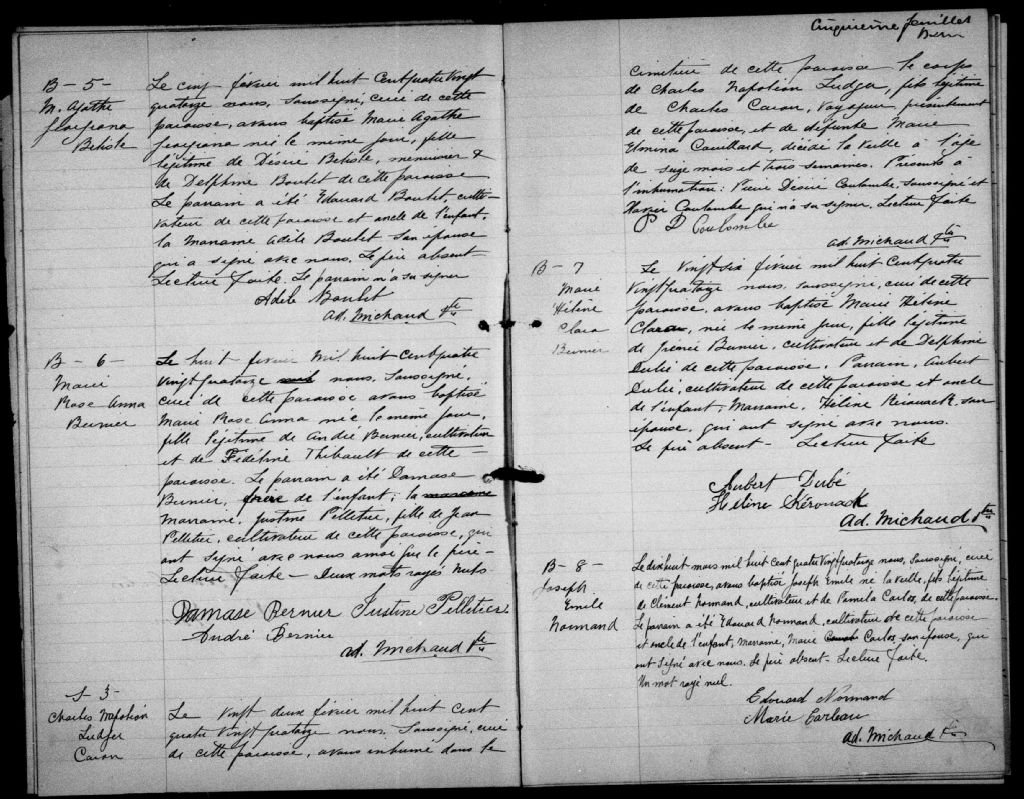 B - 5 -
M. Agathe
Georgiana
Belisle
Le cinq février mil huit cent quatre vingt
quatorze nous, soussigné, curé de cette
paroisse, avons baptisé Marie Agathe
Georgiana née le même jour, fille
légitime de Désiré Belisle, menuisier &
de Delphine Boulet de cette paroisse
Le parrain a été Edouard Boulet, culti-
vateur de cette paroisse et oncle de l'enfant,
la marraine Adèle Boulet son épouse
qui a signé avec nous. Le père absent-
Lecture faite. Le parrain n'a su signer
Adèle Boulet
Ad. Michaud Ptre
B - 6 -
Marie
Rose Anna
Bernier
Le huit février mil huit cent quatre
vingt quatorze nous, soussigné,
curé de cette paroisse avons baptisé
Marie Rose Anna née le même jour,
fille légitime de André Bernier, cultivateur
et de Fédéline Thibault de cette-
paroisse. Le parrain a été Damase
Bernier, frère de l'enfant; la
marraine, Justine Pelletier, fille de Jean
Pelletier, cultivateur de cette paroisse, qui
ont signé avec nous ainsi que le père-
Lecture faite - Deux mots rayés nuls
Damase Bernier Justine Pelletier
André Bernier
Ad. Michaud Ptre
S 3-
Charles Napoléon
Ludger
Caron
Le vingt deux février mil huit cent
quatre vingt quatorze nous, soussigné, curé
de cette paroisse, avons inhumé dans le
Cinquième feuillet
cimetière de cette paroisse le corps
de Charles Napoléon Ludger, fils légitime
de Charles Caron, voyageur, présentement
de cette paroisse, et de défunte Marie
Elmina Couillard, décédé la veille à l'âge
de seize mois et trois semaines. Présents à
l'inhumation: Pierre Désiré Coulombe, soussigné et
Xavier Coulombe qui n'a su signer, Lecture faite
P D Coulombe
Ad. Michaud Ptre
B - 7
Marie
Hélène
Clara
Bernier
Le vingt six février mil huit cent quatre
vingt quatorze nous, soussigné, curé de cette
paroisse, avons baptisé Marie Hélène
Clara, née le même jour, fille légitime
de Irénée Bernier, cultivateur et de Delphine
Dubé de cette paroisse. Parrain, Aubert
Dubé, cultivateur de cette paroisse et oncle
de l'enfant; Marraine, Hélène Kirouack, son
épouse, qui ont signé avec nous.
Le père absent - Lecture faite
Aubert Dubé
Hélène Kérouack
Ad. Michaud Ptre
B - 8 -
Joseph
Emile
Normand
Le dix huit mars mil huit cent quatre vingt quatorze nous, soussigné, curé
de cette paroisse, avons baptisé Joseph Emile né la veille, fils légitime
de Clément Normand, cultivateur et de Pamela Carlos, de cette paroisse.
Le parrain a été Edouard Normand, cultivateur de cette paroisse
et oncle de l'enfant, marraine, Marie Carlos, son épouse, qui
ont signé avec nous. Le père absent - Lecture faite.
Un mot rayé nul.
Edouard Normand
Marie
Ad. Michaud Ptre